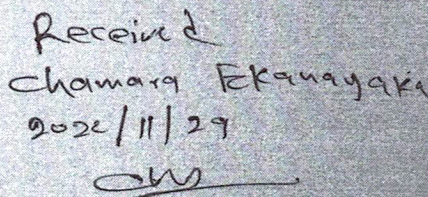 Received
Chamara Ekanayaka
2022/11/29